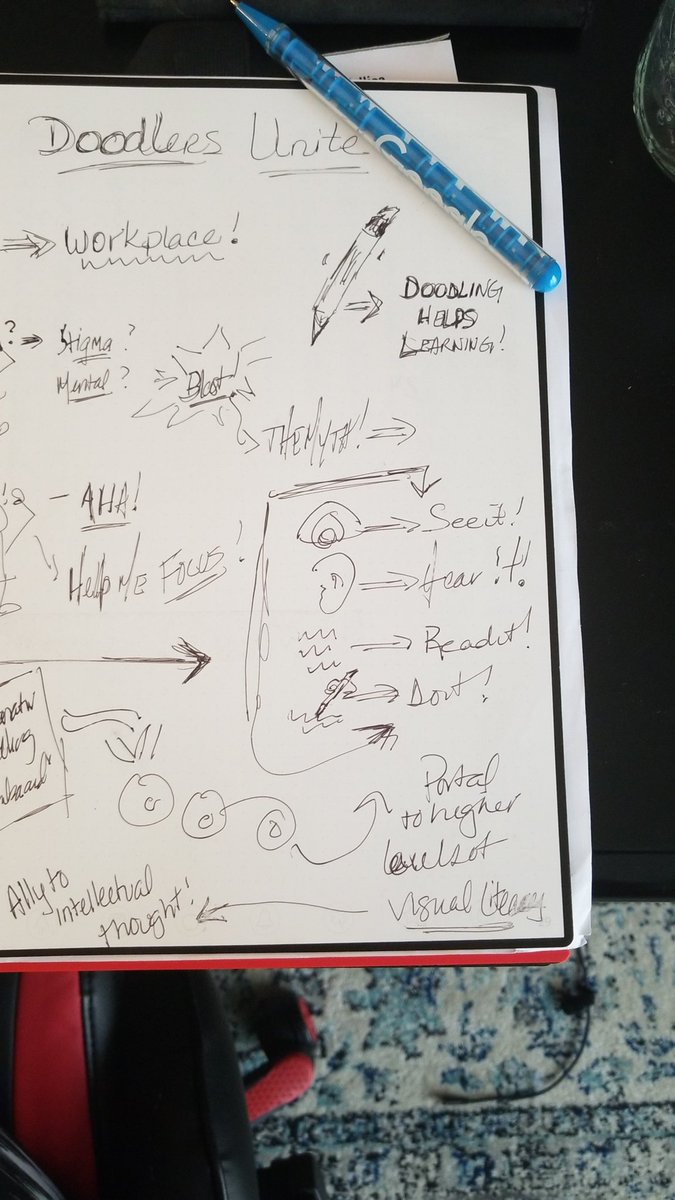 Doodlers Unite
Google
Workplace!
DOODLING
HELPS
LEARNING!
? Stigma?
Mental?
Blast!
THE MYTH!
- AHA!
Help ME FOCUS!
See it!
Hear it!
Read it!
Do it!
Portal
to higher
levels of
Visual Literacy
Ally to
intellectual
thought!